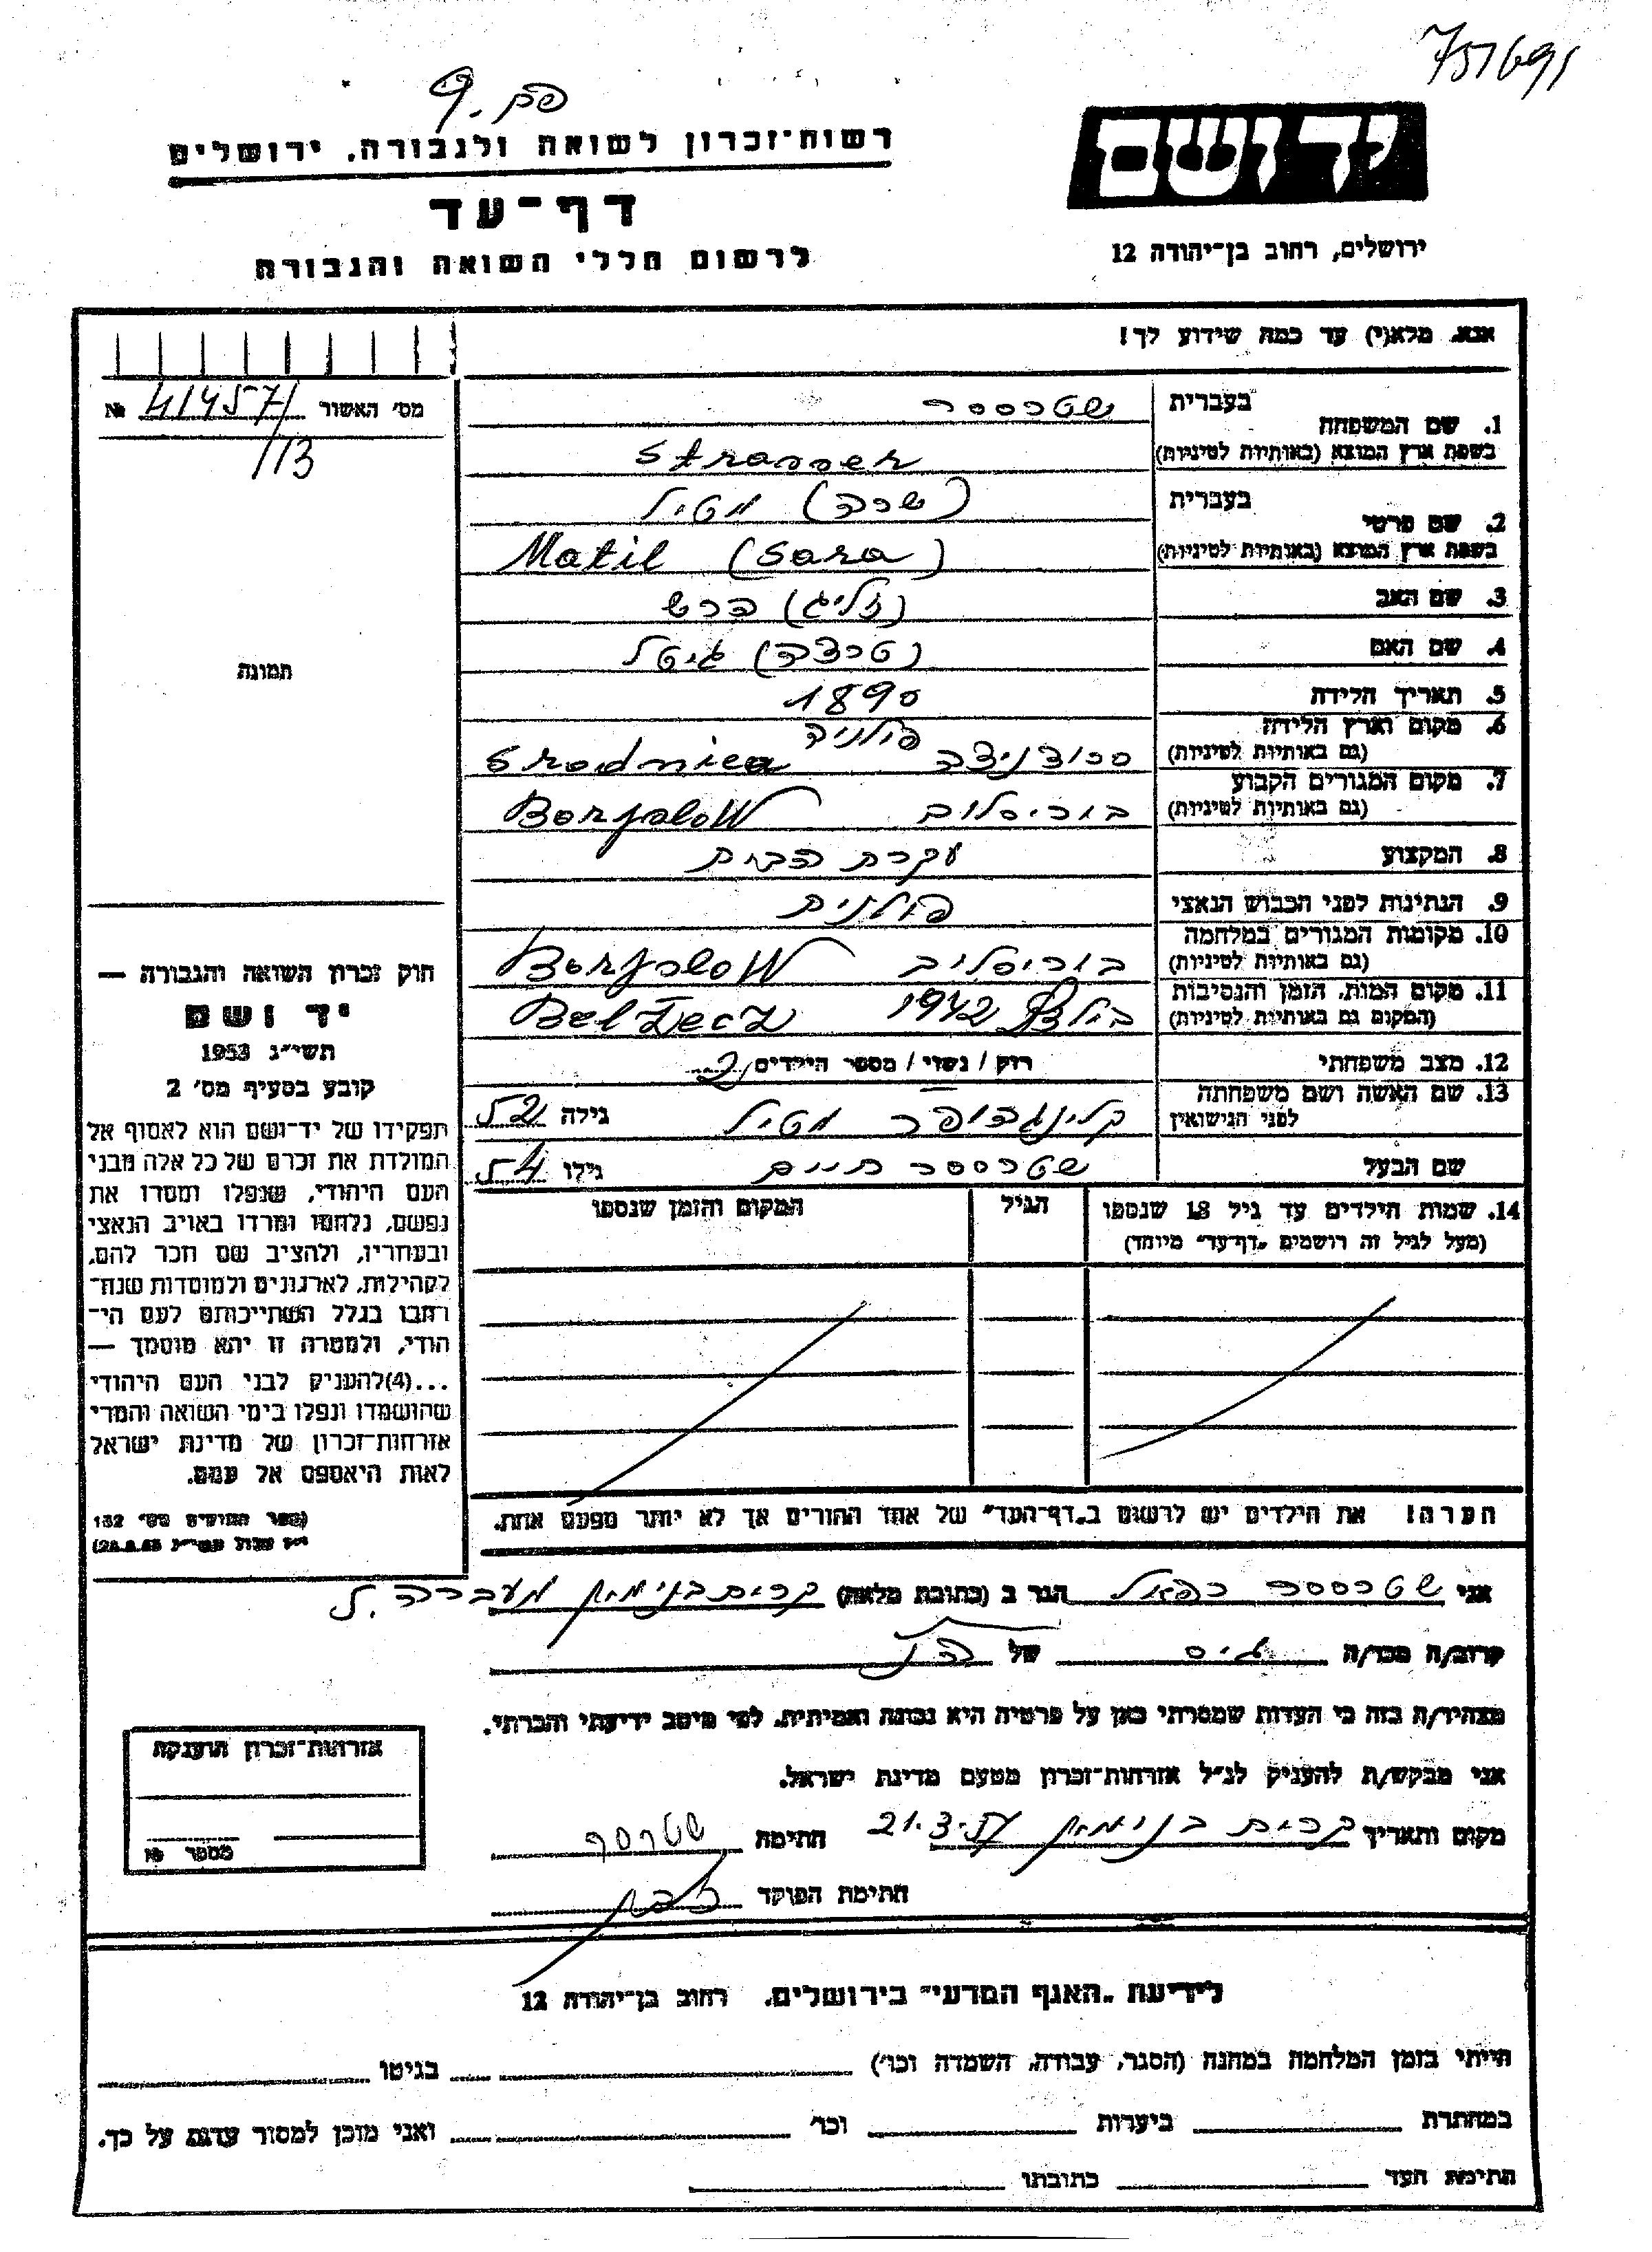 751691
פת. 9
רשות־זכרון לשואה ולגבורה, ירושלים
יד ושם
דף־עד
ירושלים, רחוב בן־יהודה 12
לרשום חללי השואה והגבורה
אנא, מלא(י) עד כמה שידוע לך!
מס׳ האשור 41457/ №
/113
תמונה
1. שם המשפחה בעברית שטרססר
בשפת ארץ המוצא (באותיות לטיניות) Strasser
2. שם פרטי בעברית (שרה) מטיל
בשפת ארץ המוצא (באותיות לטיניות) Matil (Sara)
3. שם האב (זליג) הרש
4. שם האם (טרצה) גיטל
5. תאריך הלידה 1890
6. מקום וארץ הלידה פולניה
(גם באותיות לטיניות) סרודניצה Srodnica
7. מקום המגורים הקבוע
(גם באותיות לטיניות) בוריסלוב Boryslow
8. המקצוע עקרת הבית
9. הנתינות לפני הכבוש הנאצי פולנית
10. מקומות המגורים במלחמה
(גם באותיות לטיניות) בוריסלוב Boryslow
11. מקום המות, הזמן והנסיבות
(המקום גם באותיות לטיניות) בילזץ 1942 Belzecz
12. מצב משפחתי רוק / נשוי / מספר הילדים 2
13. שם האשה ושם משפחתה
לפני הנישואין קלינגהופר מטיל גילה 52
שם הבעל שטרססר חיים גילו 54
14. שמות הילדים עד גיל 18 שנספו הגיל המקום והזמן שנספו
(מעל לגיל זה רושמים „דף־עד״ מיוחד)
הערה! את הילדים יש לרשום ב„דף־העד״ של אחד ההורים אך לא יותר מפעם אחת.
חוק זכרון השואה והגבורה —
יד ושם
תשי״ג 1953
קובע בסעיף מס׳ 2
תפקידו של יד־ושם הוא לאסוף אל
המולדת את זכרם של כל אלה מבני
העם היהודי, שנפלו ומסרו את
נפשם, נלחמו ומרדו באויב הנאצי
ובעוזריו, ולהציב שם וזכר להם,
לקהילות, לארגונים ולמוסדות שנח־
רבו בגלל השתייכותם לעם הי־
הודי, ולמטרה זו יהא מוסמך —
...(4)להעניק לבני העם היהודי
שהושמדו ונפלו בימי השואה והמרי
אזרחות־זכרון של מדינת ישראל
לאות היאספם אל עמם.
(ספר החוקים מס׳ 132
אני שטרססר רפאל הגר ב (כתובת מלאה) קרית בנימין מעברה ל.
קרוב/ה מכר/ה גיס של הנ״ל
מצהיר/ה בזה כי העדות שמסרתי כאן על פרטיה היא נכונה ואמיתית, לפי מיטב ידיעתי והכרתי.
אני מבקש/ת להעניק לנ״ל אזרחות־זכרון מטעם מדינת ישראל.
מקום ותאריך קרית בנימין 21.3.57 חתימה שטרסר
חתימת הפוקד
אזרחות־זכרון הוענקה
מספר №
לידיעת „האגף המדעי״ בירושלים, רחוב בן־יהודה 12
הייתי בזמן המלחמה במחנה (הסגר, עבודה, השמדה וכו׳) בגיטו
במחתרת ביערות וכו׳ ואני מוכן למסור עדות על כך.
חתימת העד כתובתו